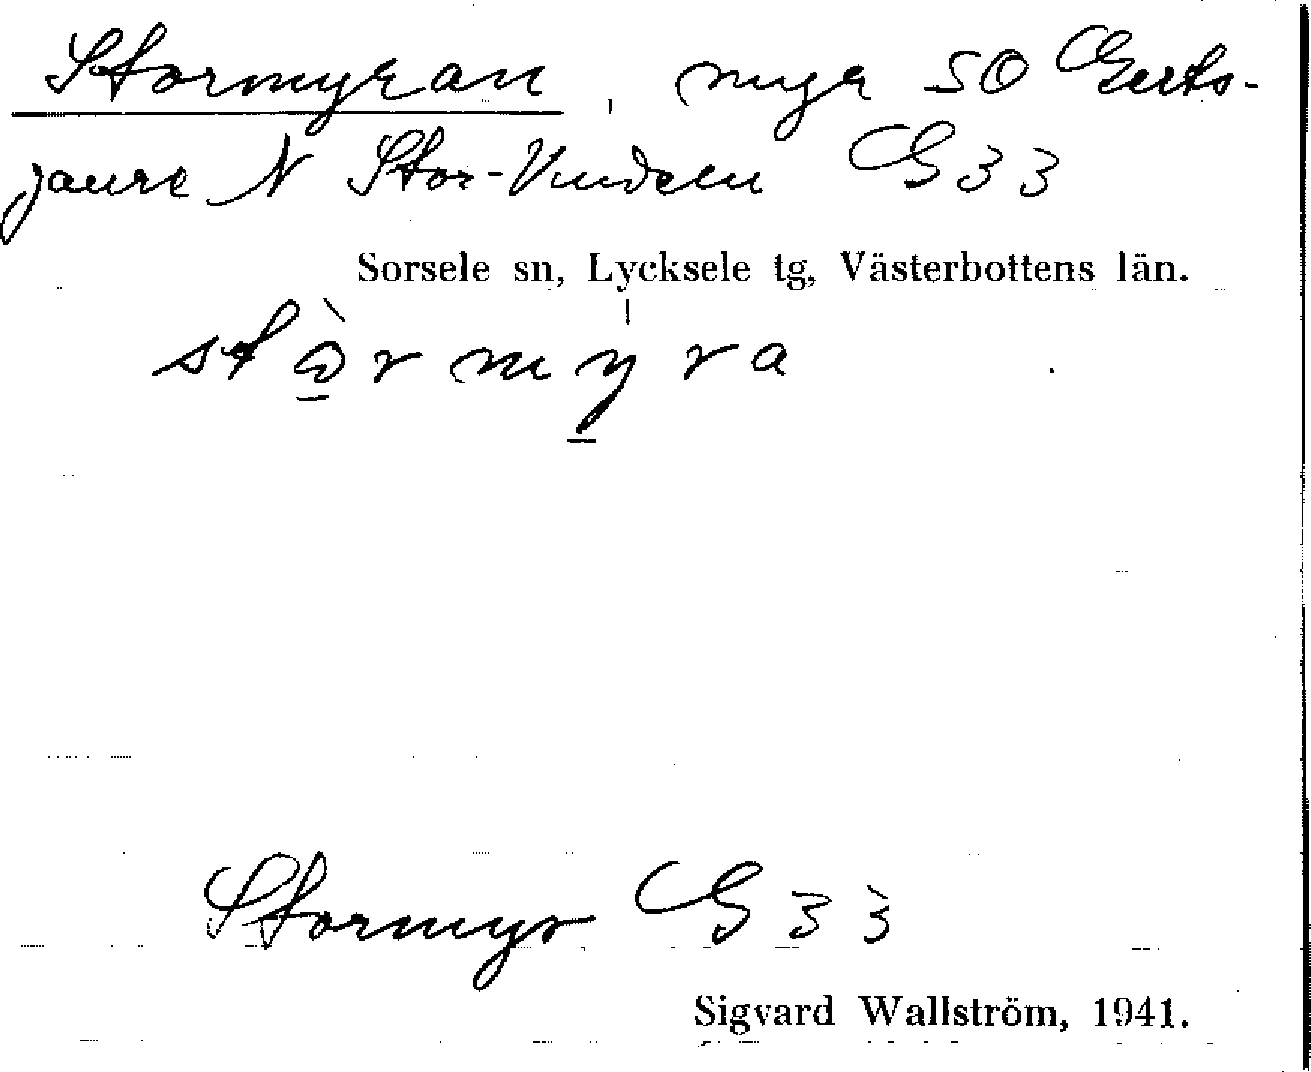 Stormyran, myra SO Gerts-
jaure N Stor-Vindeln G 33
Sorsele sn, Lycksele tg, Västerbottens län.
Stormyr G 33
Sigvard Wallström, 1941.